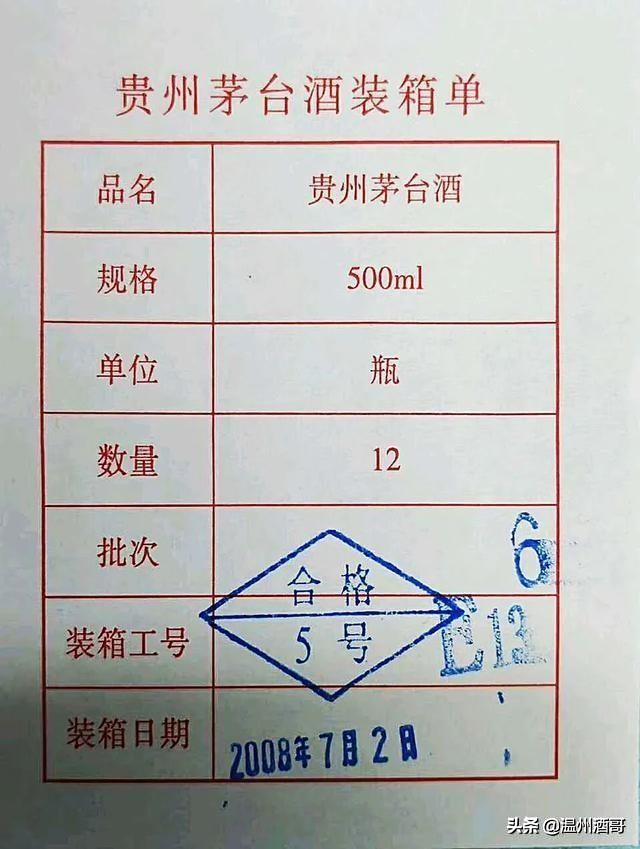 贵州茅台酒装箱单
品名 贵州茅台酒
规格 500ml
单位 瓶
数量 12
批次 6
合格
装箱工号 5号 E13
装箱日期 2008年7月2日
头条 @温州酒哥